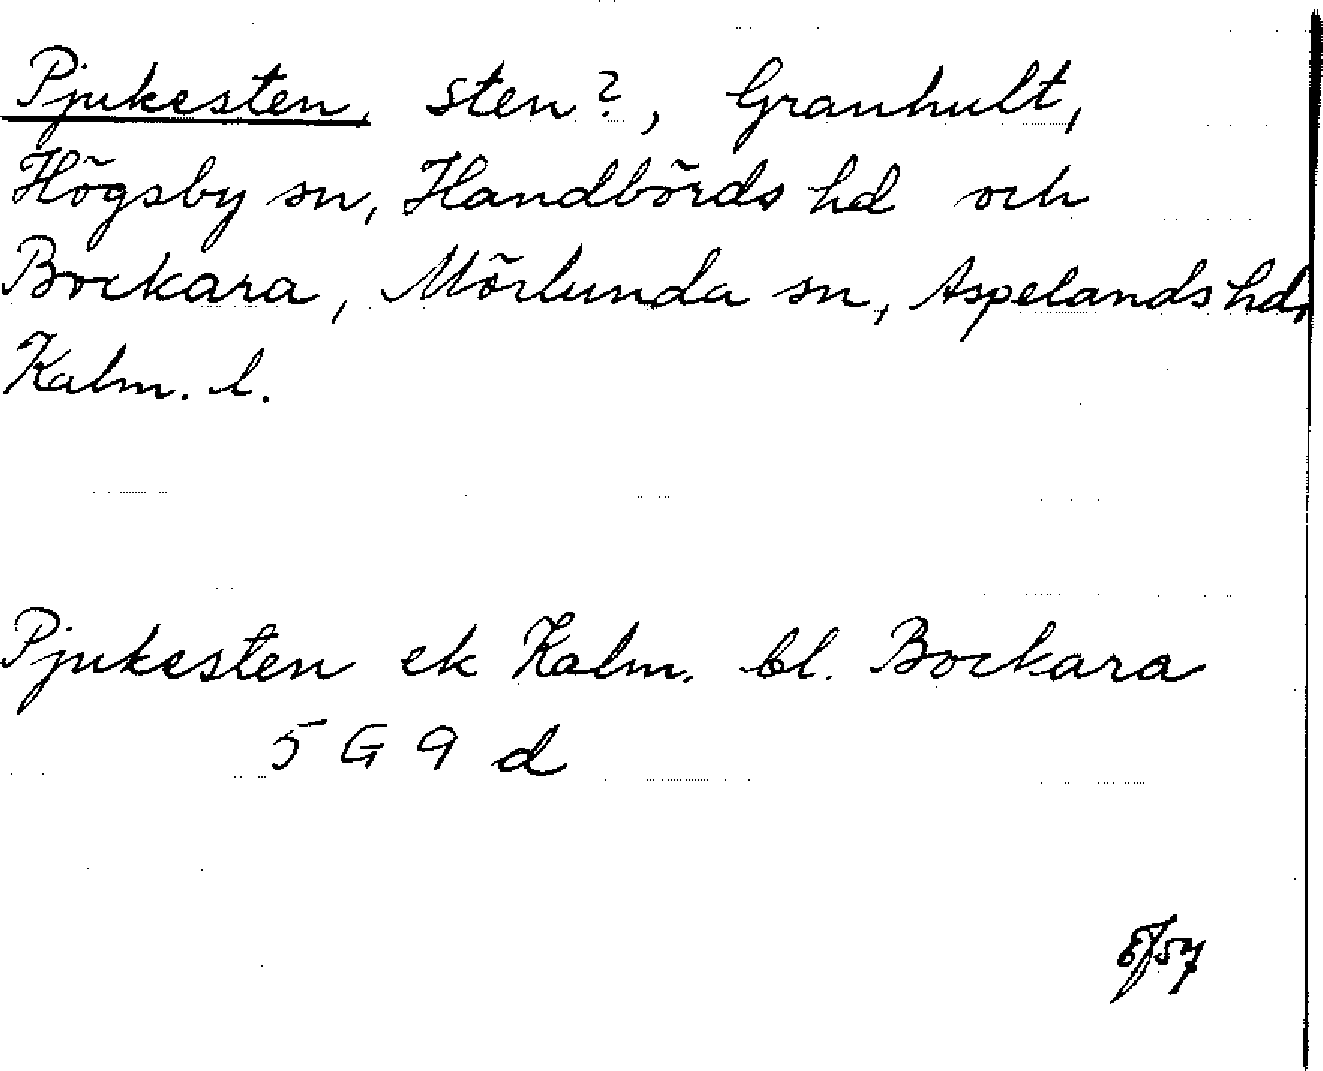 Pjukesten, sten?, Granhult,
Högsby sn, Handbörds hd och
Bockara, Mörlunda sn, Aspelands hd,
Kalm. l.
Pjukesten ek Kalm. bl. Bockara
5 G 9 d